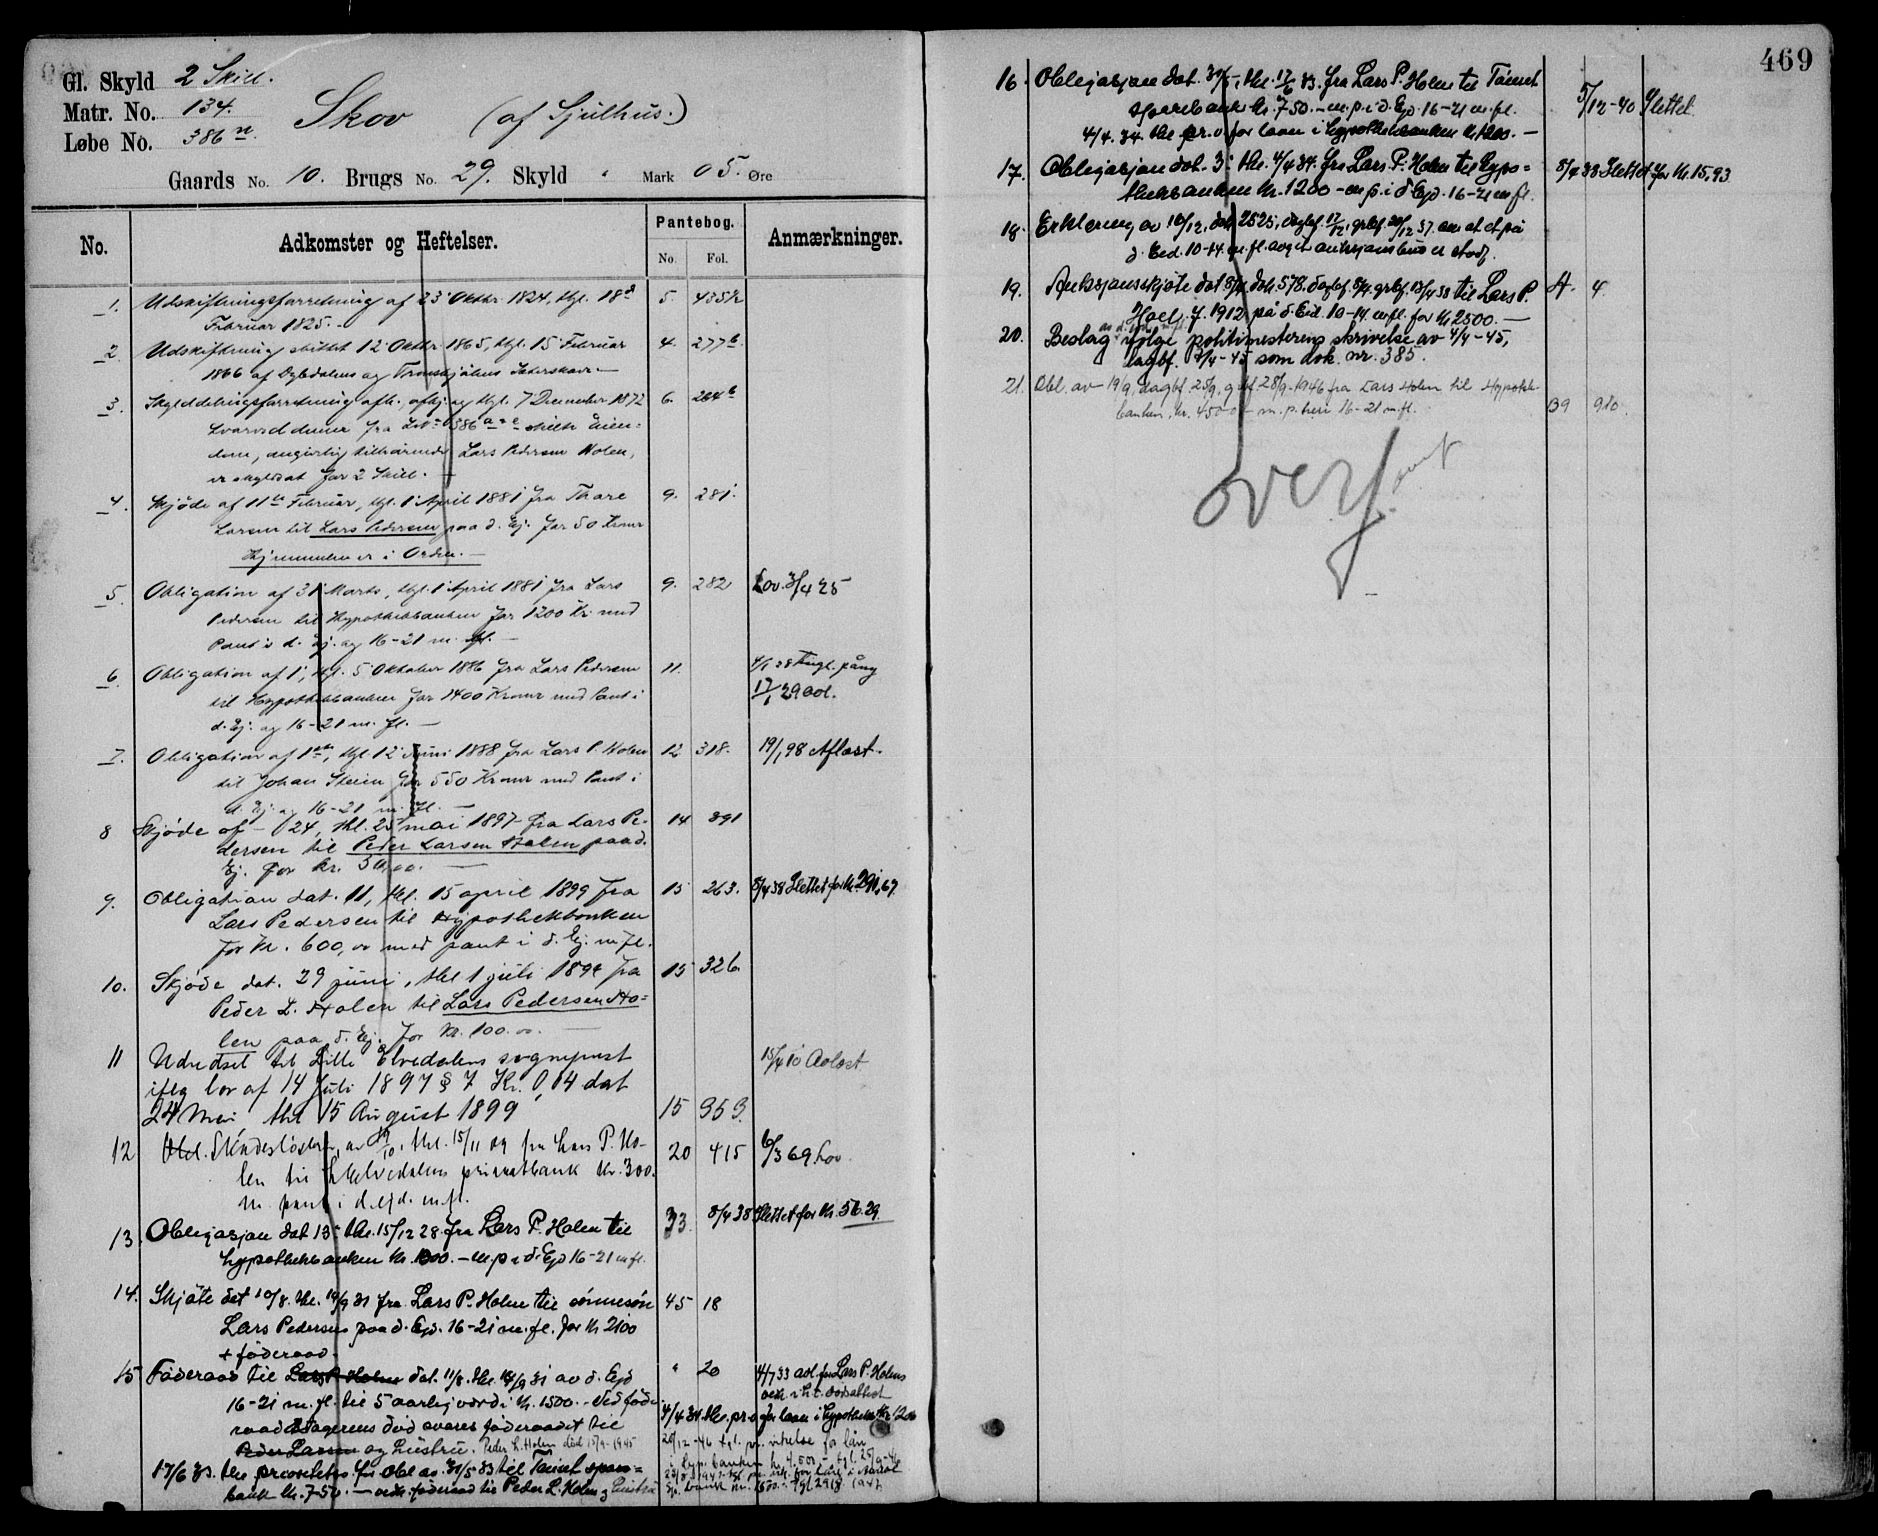 469
Gl. Skyld 2 Skill.
Matr. No. 134.
Løbe No. 386 n.
Skov (af Sjulhus.)
Gaards No. 10. Brugs No. 29. Skyld " Mark 05. Øre
No. Adkomster og Heftelser. Pantebog. Anmærkninger.
No. Fol.
1. Udskiftningsforretning af 23 Oktbr. 1824, thgl. 18d 5. 435b
Februar 1825.
2. Udskiftning sluttet 12 Oktbr. 1865, thgl. 15 Februar 4. 277b.
1866 af og
3. Skylddelingsforretning afh., afhj. og thgl. 7 December 1872 6. 264b
hvorved denne fra LNo 386 a-e skilte Eien-
dom, angivelig tilhørende Lars Pedersen Holen,
er skyldsat for 2 Skill.
4. Skjøde af 11te Februar, thgl. 1 April 1881 fra Thore 9. 281.
Larsen til Lars Pedersen paa d. Ej. for 50 Kroner
Hjemmelen er i Orden.
5. Obligation af 31 Marts, thgl. 1 April 1881 fra Lars 9. 282 Lov. 3/4 25
Pedersen til Hypothekbanken for 1200 Kr. med
Pant i d. Ej. og 16-21 m. fl.
6. Obligation af 1, thgl. 5 Oktober 1886 fra Lars Pedersen 11. 4/1 28 Tingl. påny
til Hypothekbanken for 1400 Kroner med Pant i 17/1 29 avl.
d. Ej. og 16-21 m. fl.
7. Obligation af 1ste, thgl 12 Juni 1888 fra Lars P. Holen 12. 318. 19/1 98 Aflæst.
til Johan Steien for 550 Kroner med Pant i
d. Ej. og 16-21 m. fl.
8 Skjøde af 24, thl. 25 mai 1897 fra Lars Pe- 14 391
dersen til Peder Larsen Holen paa d.
Ej. for kr. 50,00.
9. Obligation dat. 11, thl. 15 april 1899 fra 15 263. 8/4 38 Slettet for kr. 291,67
Lars Pedersen til Hypothekbanken
for kr. 600,00 med pant i d. Ej. m fl.
10. Skjøde dat. 29 juni, thl 1 juli 1899 fra 15 326.
Peder L. Holen til Lars Pedersen Ho-
len paa d. Ej. for kr. 100.00.
11 Udredsel til Lille Elvedalens sognepræst 15/4 10 Avlæst
iflg lov af 14 Juli 1897 § 7 Kr. 0,04 dat
24 Mai, thl 15 August 1899 15 353.
12 Obl. Skadesløsbr. av 19/10, thl. 15/11 09 fra Lars P. Ho- 20 415 6/3 69 Lov.
len til L Elvedalens privatbank kr. 300.
m. pant i d. ejd. m. fl.
13. Obligasjon dat 13 thl. 15/12 28 fra Lars P. Holen til 33. 8/4 38 Slettet for kr. 56.29.
hypothekbanken kr. 1300. - m p i d. Ejd 16-21 m fl.
14. Skjøte dat 10/8. thl. 19/9 31 fra Lars P. Holen til sønnesøn 45 18
Lars Pedersen paa d. Ejd. 16-21 m. fl. for kr 2100
+ føderaad.
15 Føderaad til Lars P Holen dat. 11/8. thl. 19/9 31 av d. Ejd " 20 4/7 33 avl. for Lars P. Holens
16-21 m. fl. til 5 aarlig værdi kr. 1500. - Ved føde- vedk. i h. t. dødsattest
raadstagerens død svares føderaadet til 4/4 34 thl. pr. o for laan i hypothekbk kr 1200
Peder Larsen og hustru. Peder L. Holen død 15/9-1945 20/12-46 tgl. pr. vikelse for lån
17/6 33. thl prioritetsv. for Obl av. 30/5 33 til Tønset spare- i hyp. banken kr. 4.500
bank kr. 750. - vedk. føderaad til Peder L. Holen og hustru
16. Obligasjon dat. 30/5, thl. 17/6 33. fra Lars P. Holen til Tønset 5/12-40 Slettet.
sparebank kr. 750. - m. p. i d. Ejd. 16-21 m. fl.
4/4. 34. thl pr. o for laan i hypothekbanken kr. 1200. -
17. Obligasjon dat. 3 thl. 4/4 34. fra Lars P. Holen til Hypo- 8/4 38 Slettet for kr. 15,93
thekbanken kr. 1200 - m. p. i d Ejd. 16-21 m. fl.
18. Erklering av 16/12, dok 2525, dagbf. 17/12, grbf. 20/12 37. om at et på
d. Eid. 10-14 m. fl. avgit auksjonsbud er stadf.
19. Auksjonsskjøte dat 8/4 dok 578. dagbf. 8/4. grbf. 13/4 38 til Lars P. A. 4.
Holen f. 1912 på d. Eid. 10-14 m fl. for kr 2500. -
20. Beslag ifølge politimesterens skrivelse av 4/4-45,
dagbf. 7/4-45 som dok. nr. 385.
21. Obl. av 19/9, dagbf. 25/9, g bf 28/9-1946 fra Lars Holen til Hypotek-
banken, kr. 4500 - m. p. heri 16-21 m. fl. B9 910.
Overf.